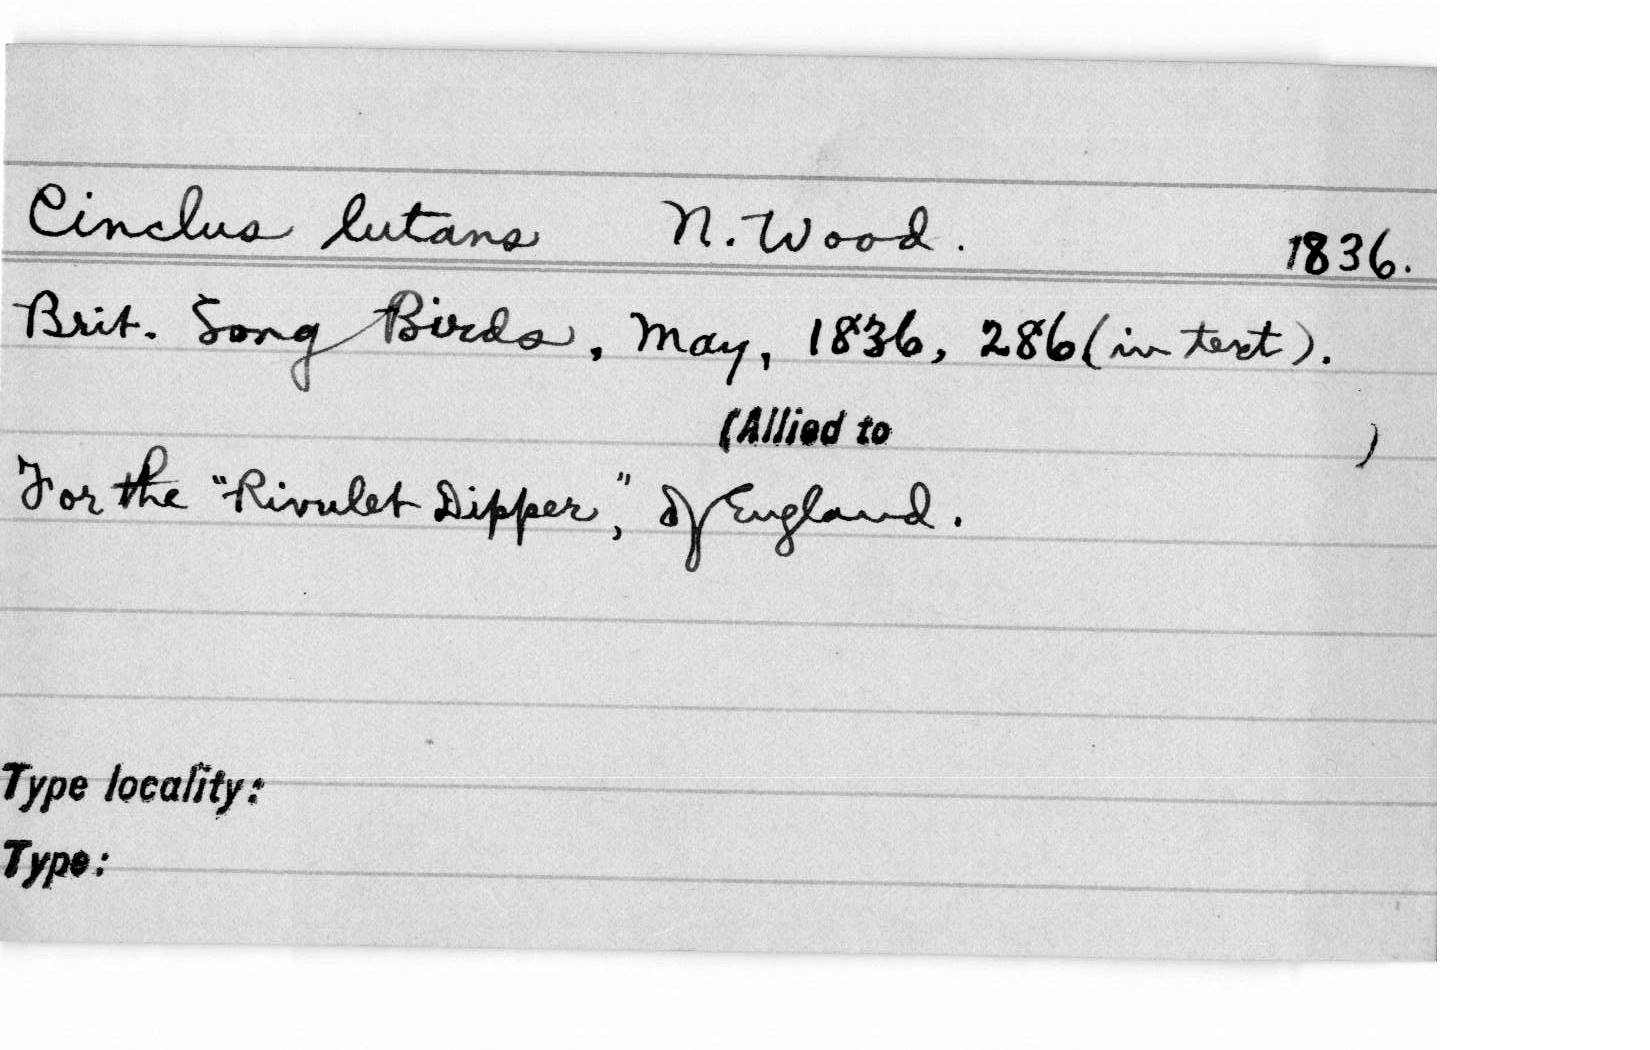 Cinclus lutans N. Wood. 1836.
Brit. Song Birds, May, 1836, 286 (in text).
(Allied to )
For the "Rivulet Dipper," of England.
Type locality:
Type: